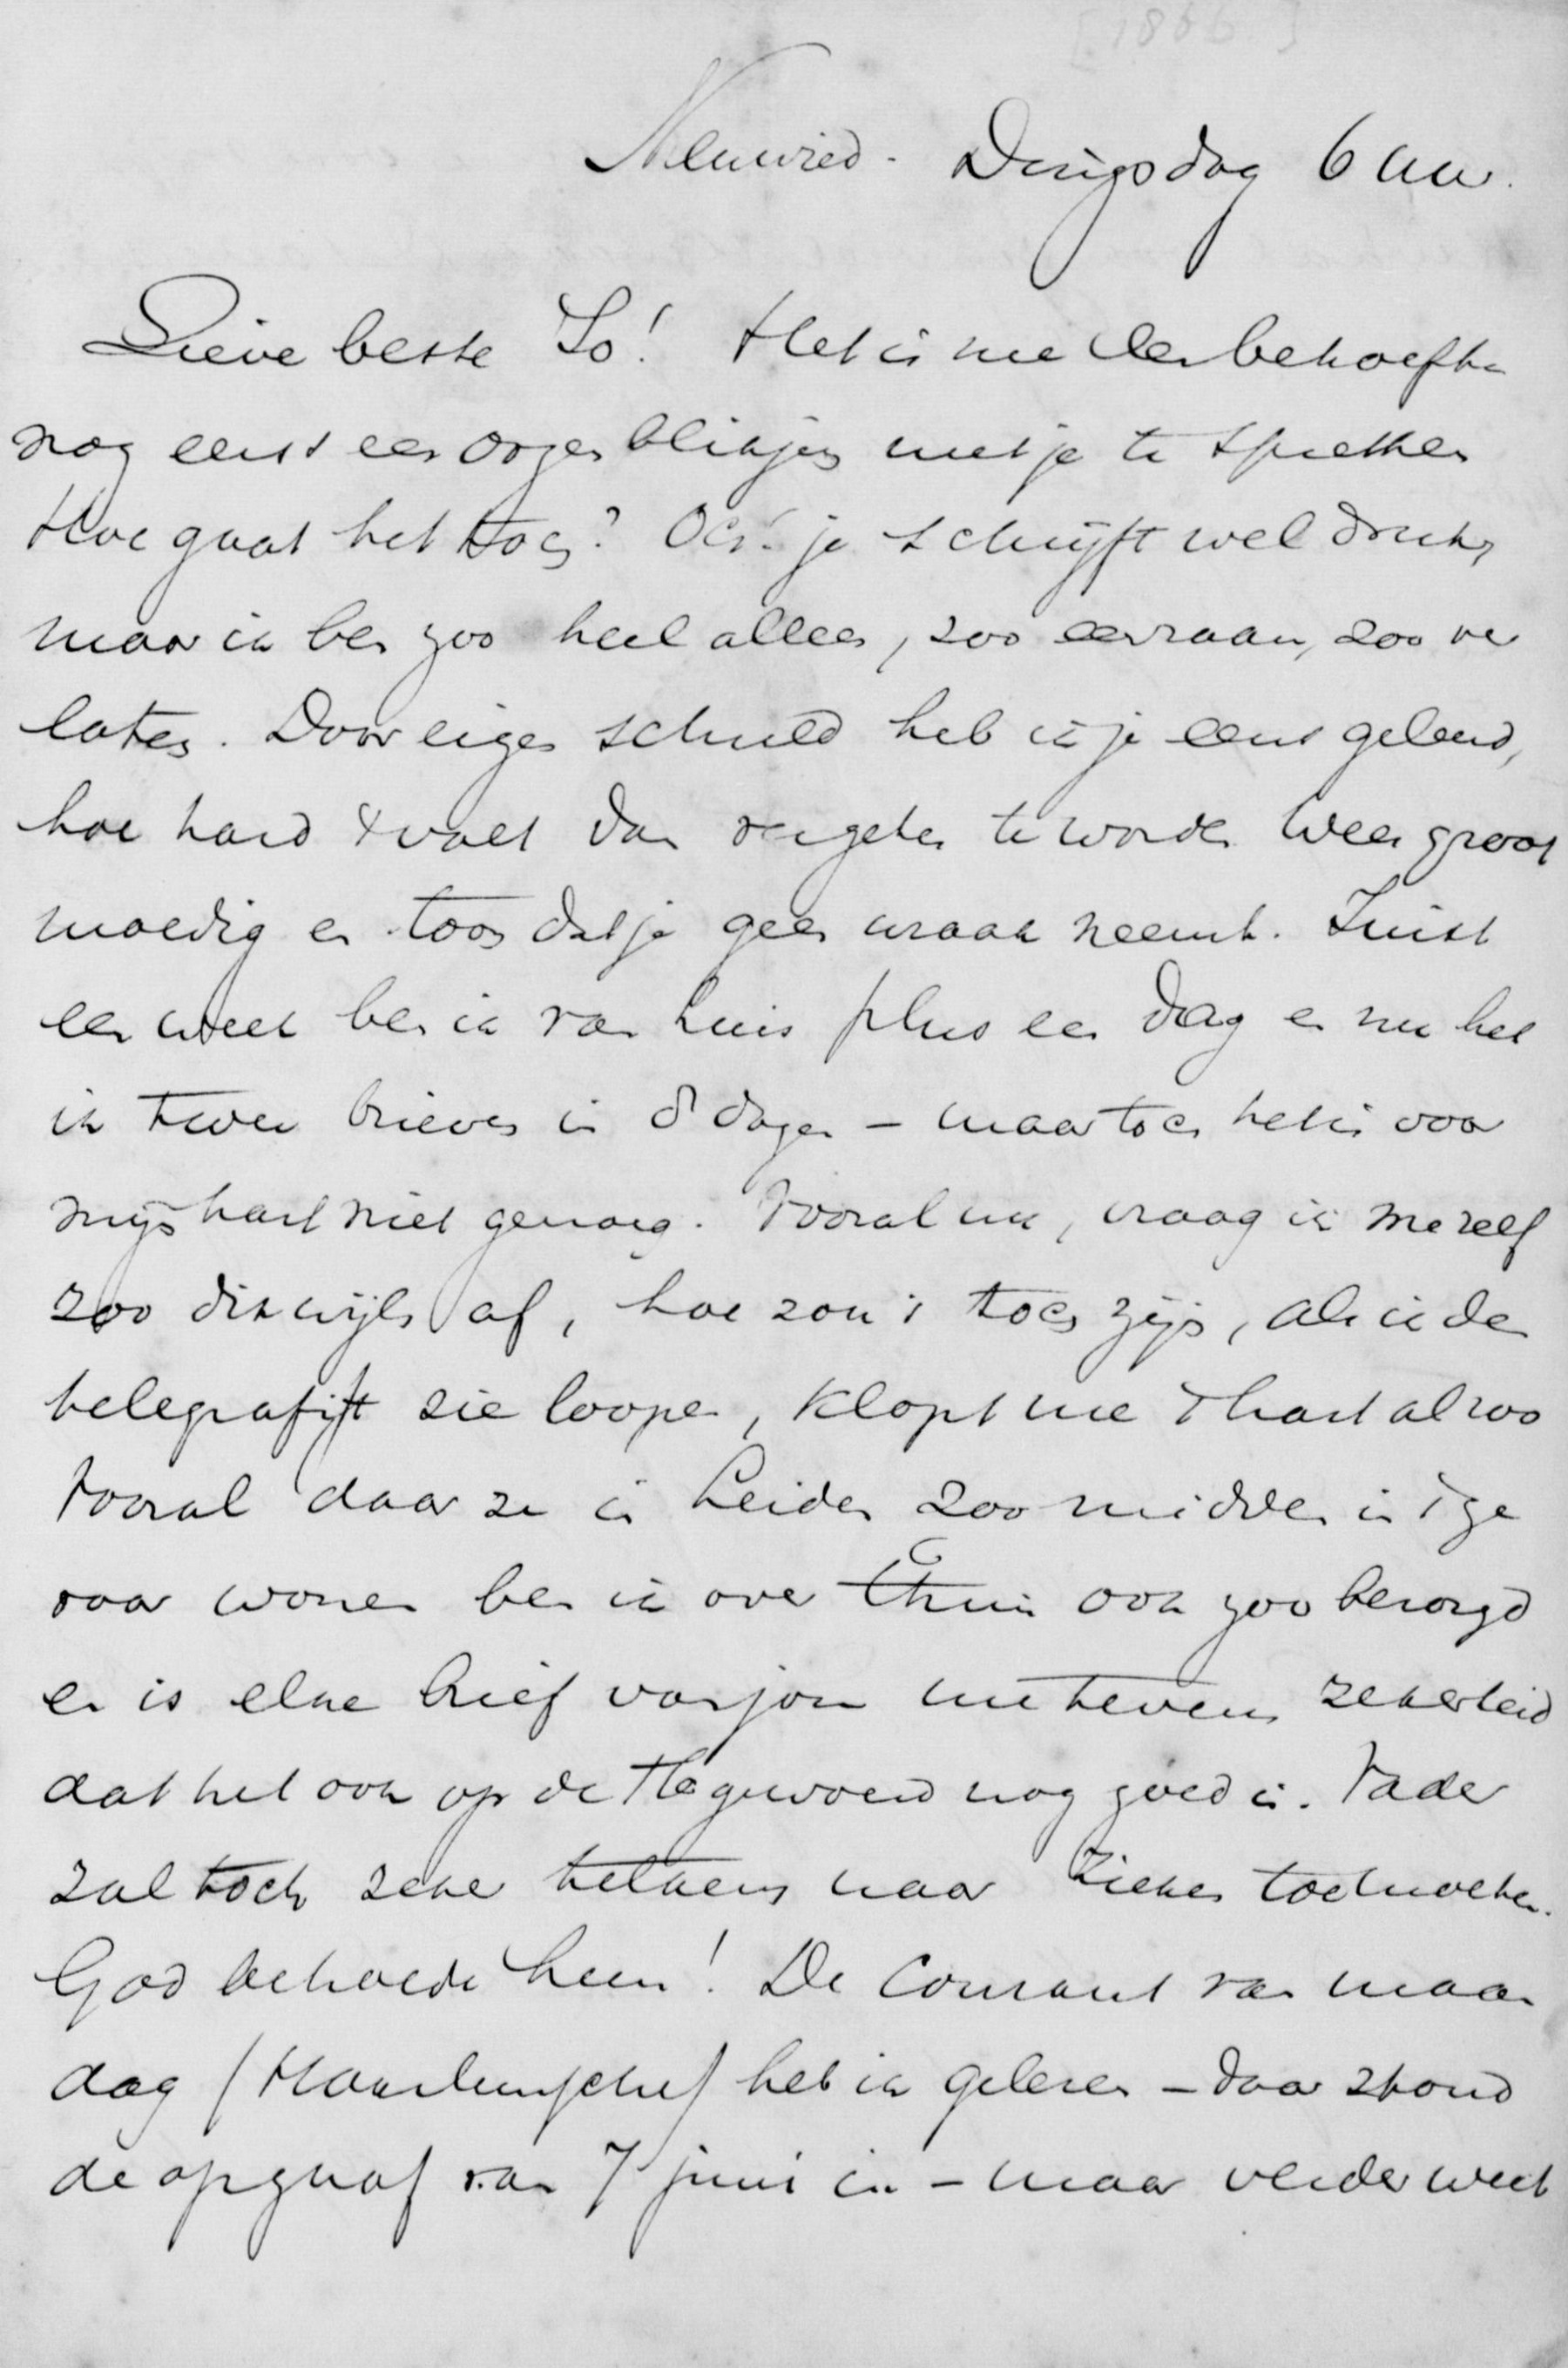 [1866]
Neuwied. Dingsdag 6 uur.
Lieve beste Jo! Het is me een behoefte
nog eens een oogenblikjen met je te spreken
Hoe gaat het toch? Och! je schrijft wel druk,
maar ik ben zoo heel alleen, zoo eenzaam, zoo ver
laten. Door eigen schuld heb ik je eens geleerd,
hoe hard 't valt dan vergeten te worden Wees groot
moedig en toon dat je geen wraak neemt. Juist
een week ben ik van huis plus een dag en nu heb
ik twee brieven in 8 dagen – maar toch het is voor
mijn hart niet genoeg. Vooral nu, vraag ik me zelf
zoo dikwijls af, hoe zou 't toch zijn, als ik den
telegrafist zie loopen, klopt me 't hart al zoo
vooral daar ze in Leiden zoo midden in 't ge
vaar wonen ben ik over thuis ook zoo bezorgd
en is elke brief van jou me tevens zekerheid
dat het ook op de Hogewoerd nog goed is. Vader
zal toch zeker telkens naar zieken toe moeten.
God behoede hem! De Courant van maan
dag (Haarlemsche) heb ik gelezen – daar stond
de opgaaf van 7 juni in – maar verder weet